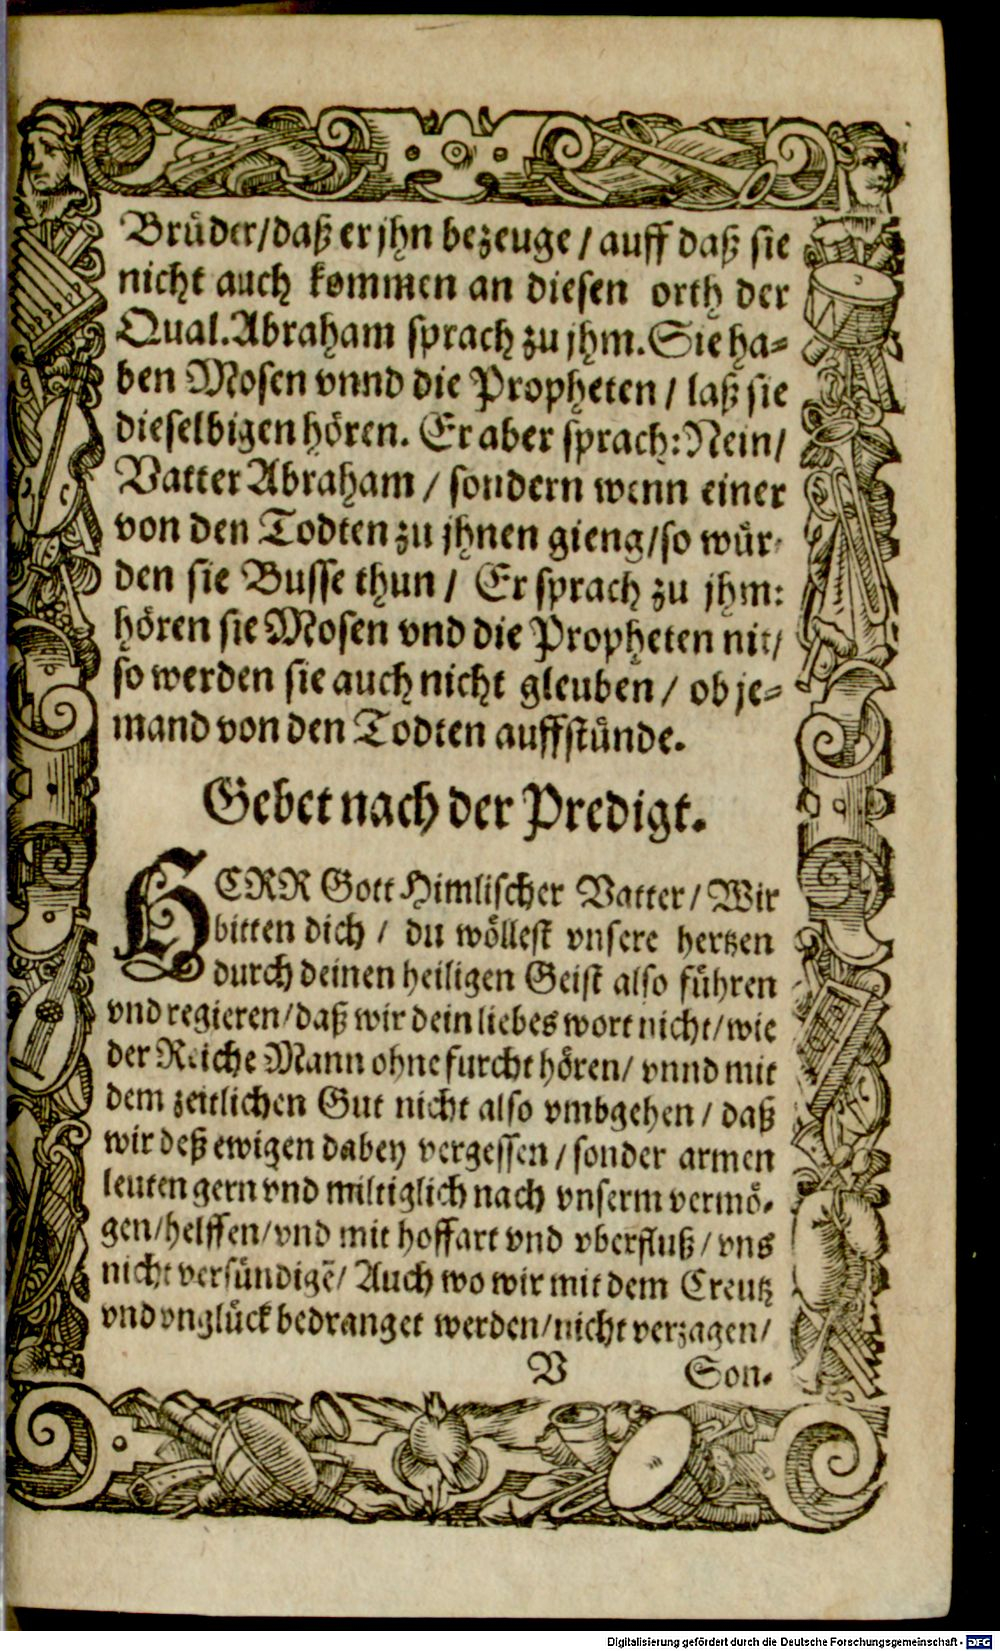 Brüder/daß er jhn bezeuge / auff daß sie
nicht auch kommen an diesen orth der
Qual. Abraham sprach zu jhm. Sie ha-
ben Mosen vnnd die Propheten / laß sie
dieselbigen hören. Er aber sprach: Nein/
Vatter Abraham / sondern wenn einer
von den Todten zu jhnen gieng/so wür-
den sie Busse thun / Er sprach zu jhm:
hören sie Mosen vnd die Propheten nit/
so werden sie auch nicht gleuben / ob je-
mand von den Todten auffstünde.
Gebet nach der Predigt.
HERR Gott Himlischer Vatter/ Wir
bitten dich / du wöllest vnsere hertzen
durch deinen heiligen Geist also führen
vnd regieren/daß wir dein liebes wort nicht/wie
der Reiche Mann ohne furcht hören/ vnnd mit
dem zeitlichen Gut nicht also vmbgehen / daß
wir deß ewigen dabey vergessen / sonder armen
leuten gern vnd miltiglich nach vnserm vermö-
gen/helffen/vnd mit hoffart vnd vberfluß/ vns
nicht versündigē/ Auch wo wir mit dem Creutz
vnd vnglück bedranget werden/nicht verzagen/
V Son-
Digitalisierung gefördert durch die Deutsche Forschungsgemeinschaft - DFG